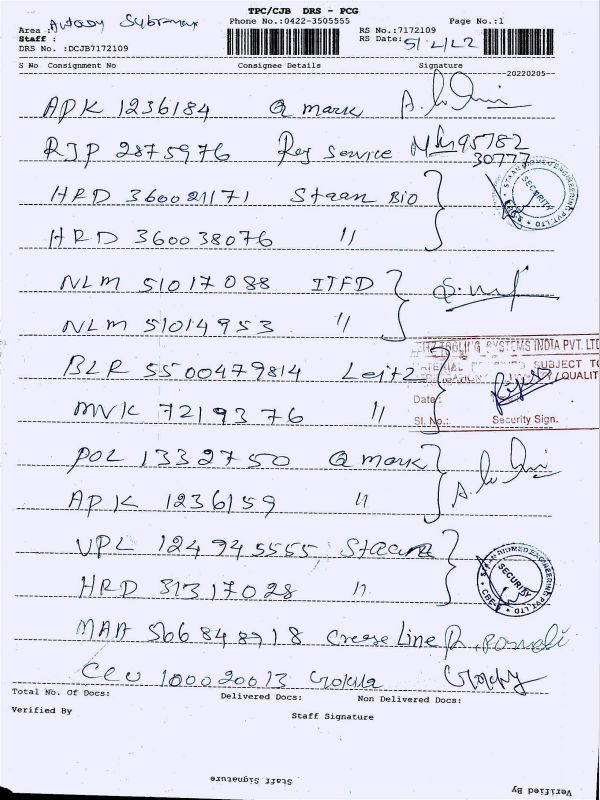 TPC/CJB DRS - PCG
Phone No.:0422-3505555 Page No.:1
Area :
Staff :
RS No.:7172109
RS Date: 5/2/22
DRS No. :DCJB7172109
S No Consignment No Consignee Details Signature
20220205
APK 1236184 Q mark
RJP 2875976 Rey Service 95782
30777
HRD 360021171 Staan Bio
HRD 360038076 "
NLM 51017088 ITFD
NLM 51014953 "
BLR 5500479814 Leitz
MVK 7219376 "
POL 1332750 Q mark
APK 1236159 "
VPL 124945555 Staan
HRD 31317028 "
MAA 566848718 Crease Line
CCU 100020013 Gokula
STAAN BIOMED ENGINEERING PVT. LTD
SECURITY
SYSTEMS INDIA PVT. LTD
SUBJECT TO
QUALIT
Date :
Sl. No.: Security Sign.
STAAN BIOMED ENGINEERING PVT. LTD
CBE
SECURITY
Total No. Of Docs: Delivered Docs: Non Delivered Docs:
Verified By Staff Signature
Staff Signature
Verified By